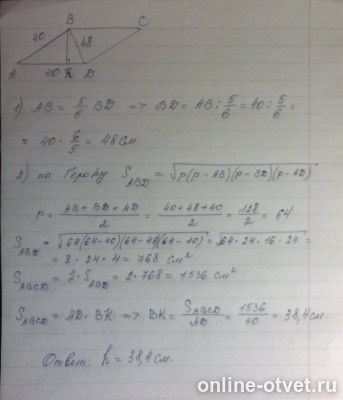 B C
40 48
A 40 K D
1) AB = 5/6 BD => BD = AB : 5/6 = 40 : 5/6 =
= 40 · 6/5 = 48 см.
2) по Герону S_ABD = √(p(p-AB)(p-BD)(p-AD))
p = (AB + BD + AD)/2 = (40 + 48 + 40)/2 = 128/2 = 64
S_ABD = √(64(64-40)(64-48)(64-40)) = √(64·24·16·24) =
= 8 · 24 · 4 = 768 см²
S_ABCD = 2 · S_ABD = 2 · 768 = 1536 см²
S_ABCD = AD · BK => BK = S_ABCD/AD = 1536/40 = 38,4 см.
Ответ: h = 38,4 см.
online-otvet.ru